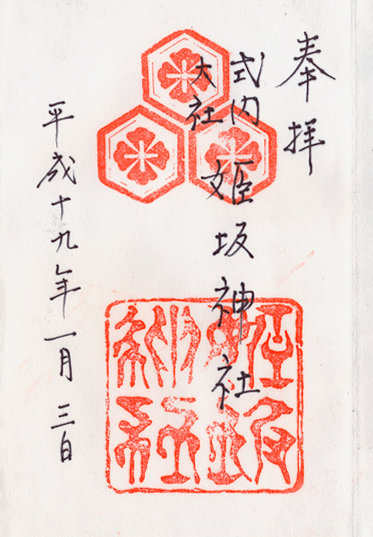 奉拝
式内
大社
姫坂神社
平成十九年一月三日